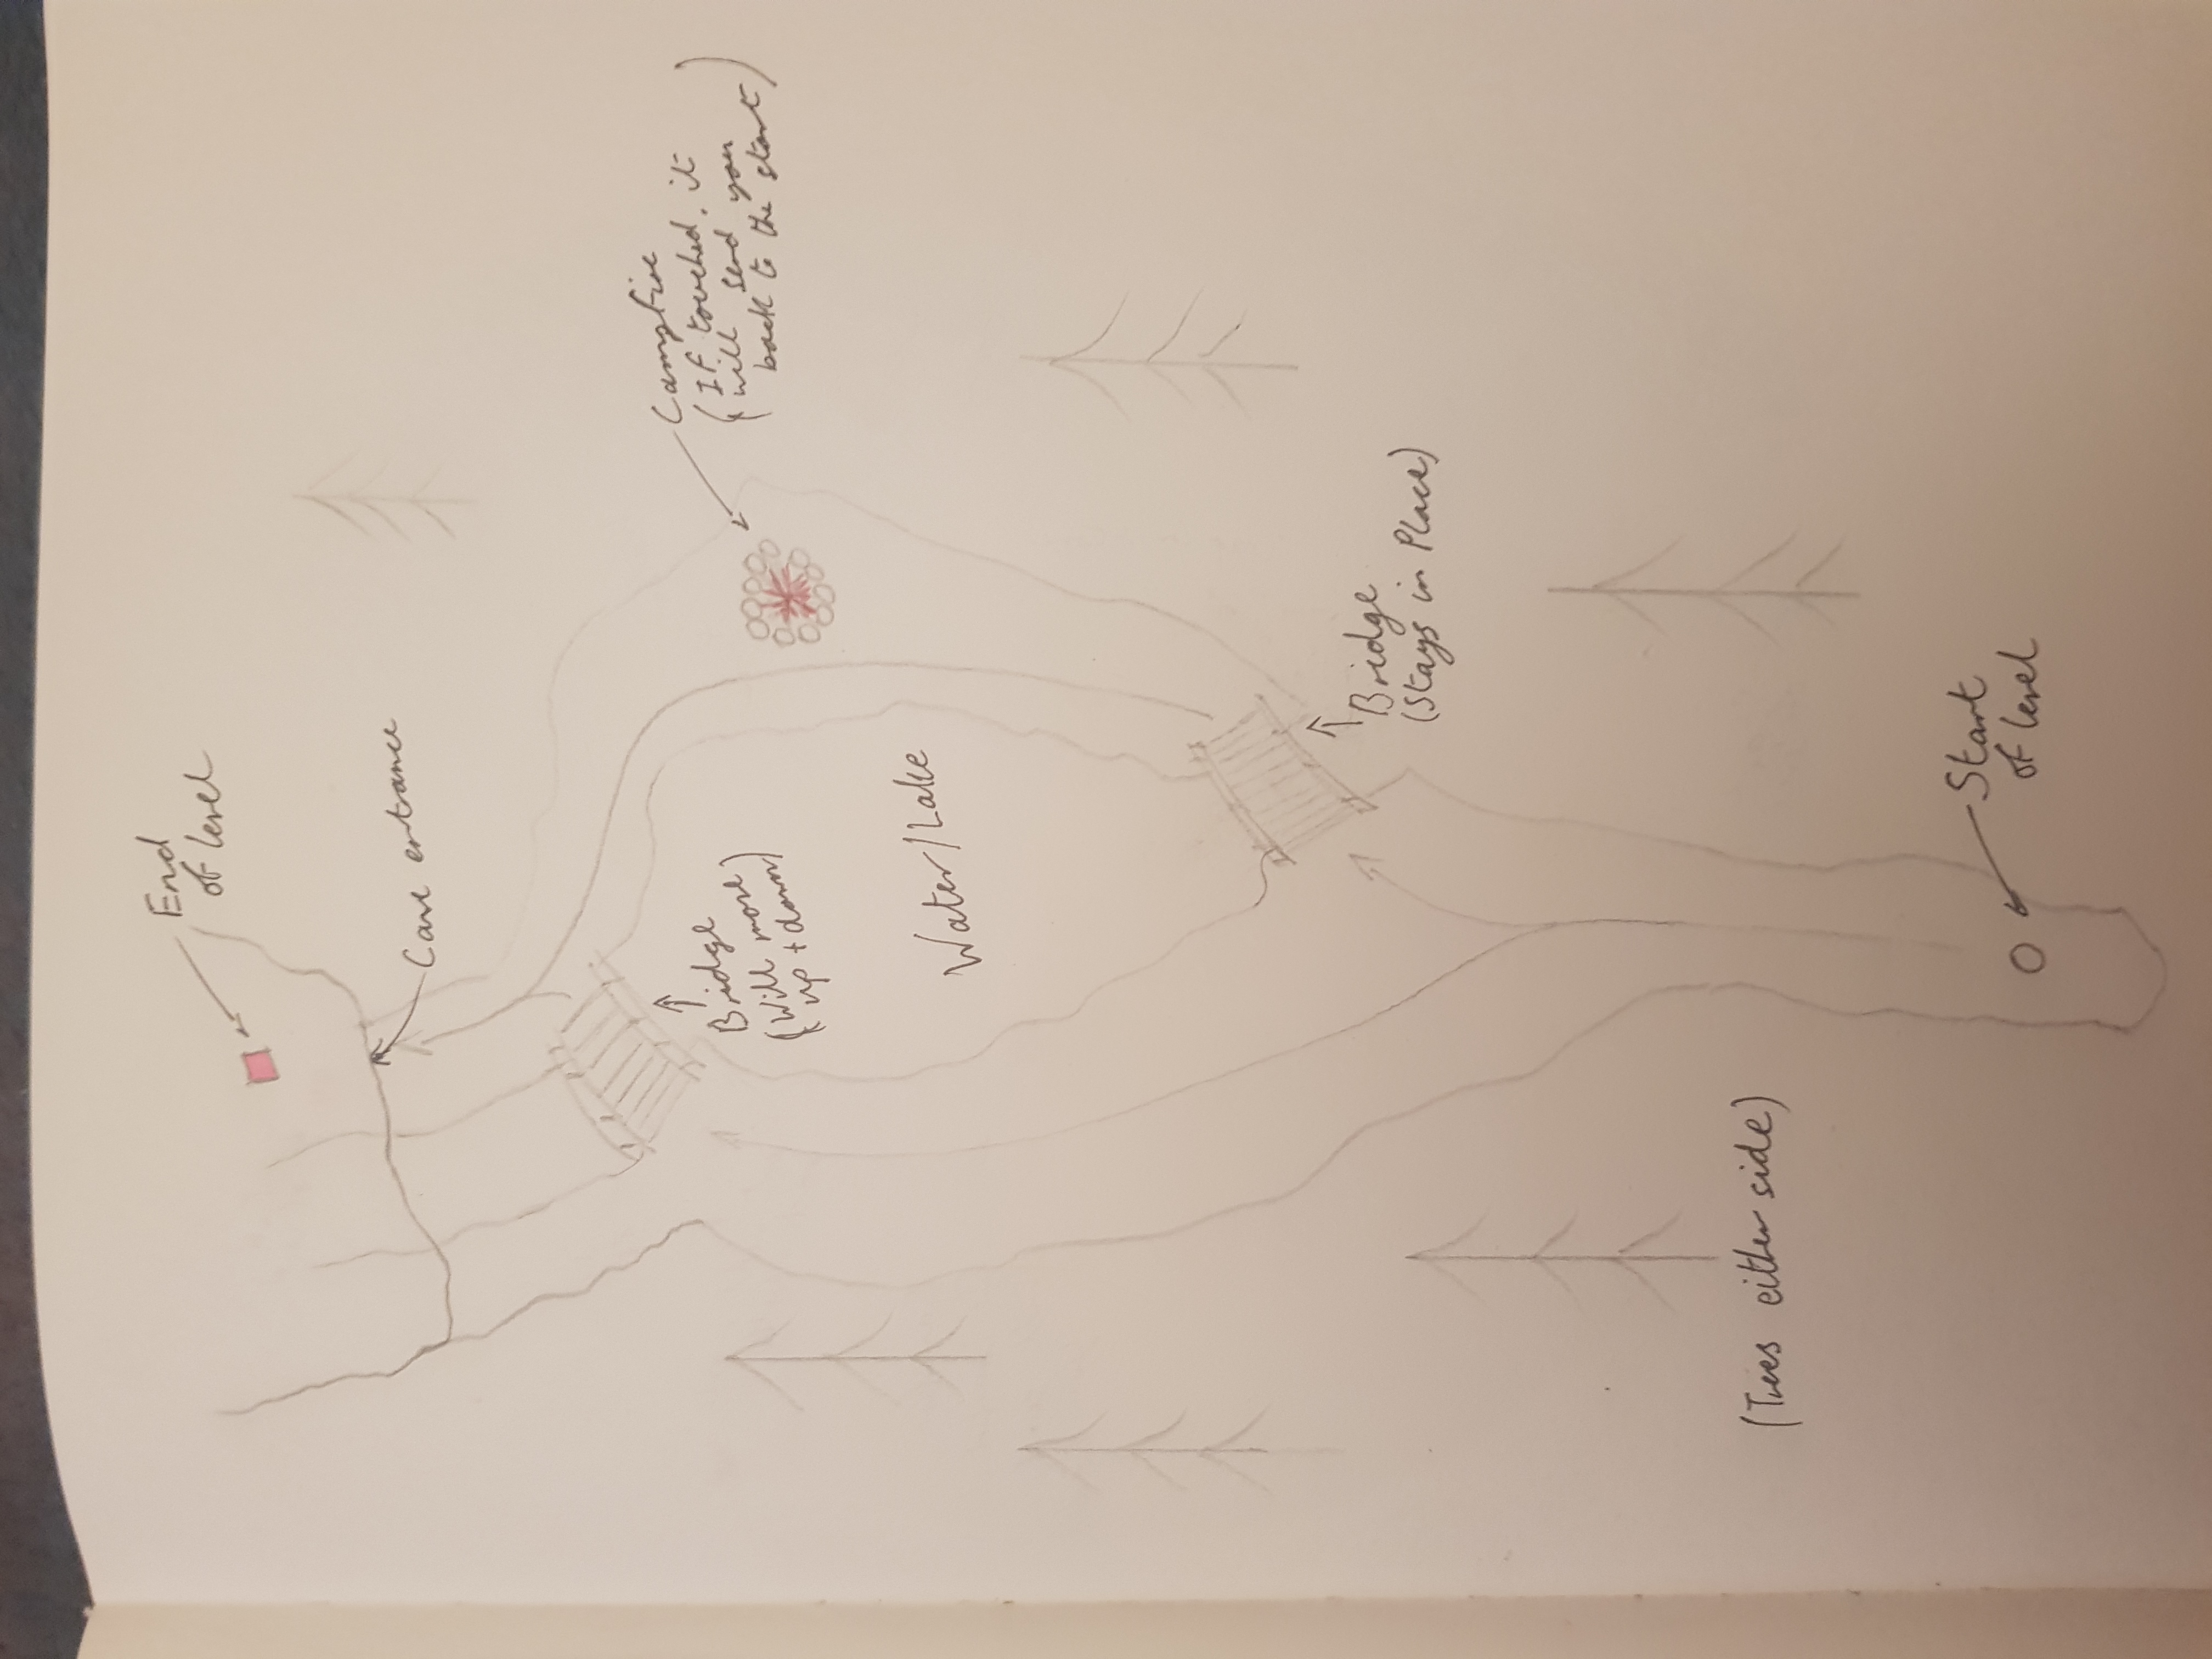 End
of level
Cave entrance
Campfire
(If touched, it
will send you
back to the start)
Bridge
(Will move
up + down)
Water/Lake
Bridge
(Stays in Place)
(Trees either side)
Start
of level